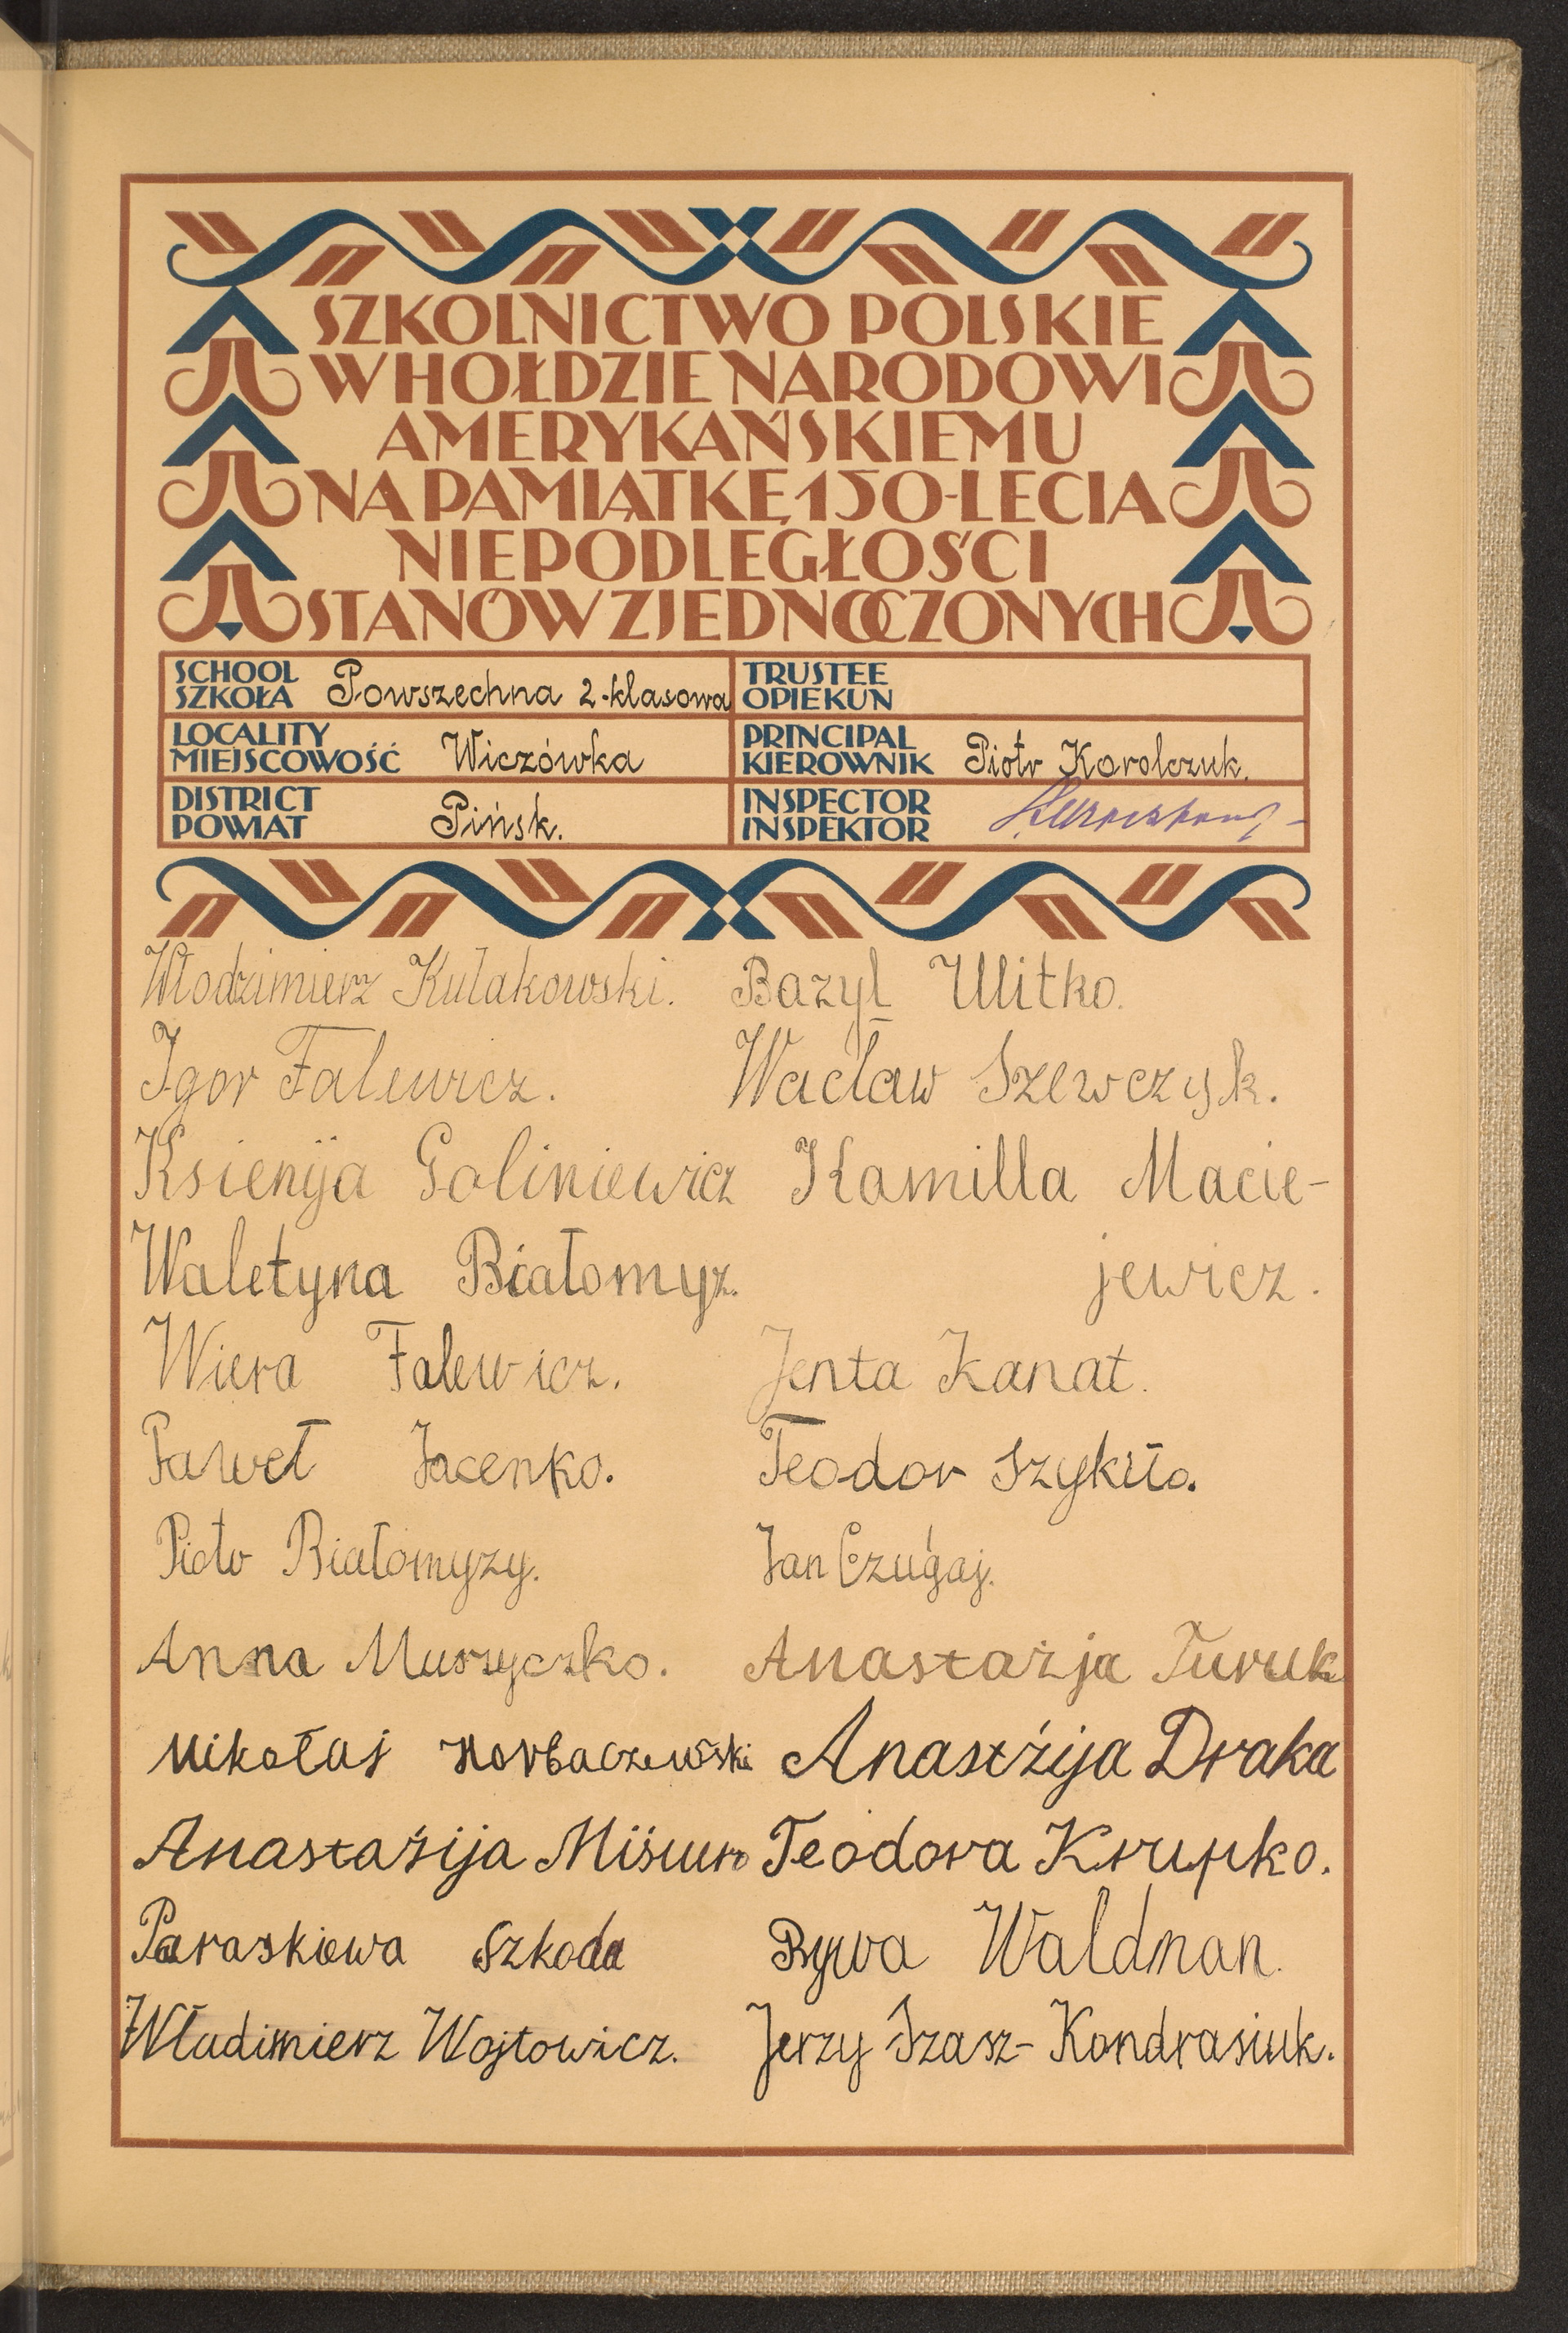 SZKOLNICTWO POLSKIE
W HOŁDZIE NARODOWI
AMERYKAŃSKIEMU
NA PAMIĄTKĘ 150-LECIA
NIEPODLEGŁOŚCI
STANÓW ZJEDNOCZONYCH
SCHOOL
SZKOŁA Powszechna 2-klasowa
TRUSTEE
OPIEKUN
LOCALITY
MIEJSCOWOŚĆ Wiczówka
PRINCIPAL
KIEROWNIK Piotr Korolczuk.
DISTRICT
POWIAT Pińsk.
INSPECTOR
INSPEKTOR
Włodzimierz Kułakowski.
Igor Falewicz.
Ksienija Goliniewicz
Waletyna Białomyz.
Wiera Falewicz.
Paweł Jacenko.
Piotr Białomyzy.
Anna Muszyczko.
Mikołaj Horbaczewski
Anastazija Misiuro
Paraskiewa Szkoda
Władimierz Wojtowicz.
Bazyl Ulitko.
Wacław Szewczyk.
Kamilla Macie-
jewicz.
Jenta Kanat.
Teodor Szykiło.
Jan Czugaj.
Anastazja Turuk
Anastźija Draka
Teodora Krupko.
Rywa Waldman.
Jerzy Szasz-Kondrasiuk.